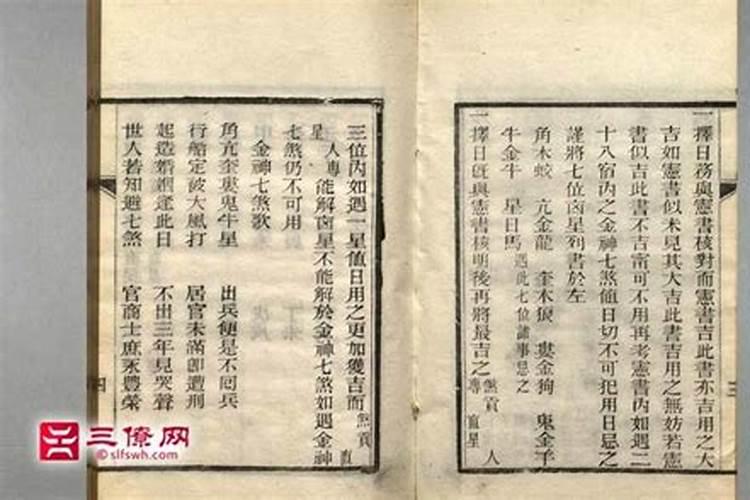 一擇日務與憲書核對而憲書吉此書亦吉用之大
吉如憲書似未見其大吉此書吉用之無妨若憲
書似吉此書不吉甯可不用再考憲書內如遇二
十八宿內之金神七煞值日切不可犯用日忌之
謹將七位凶星列書於左
角木蛟 亢金龍 奎木狼 婁金狗 鬼金羊
牛金牛 星日馬 遇此七位諸事忌之
一擇日既與憲書核明後再將最吉之 煞貢 專 直星 人
三位內如遇一星值日用之更加獲吉而 煞貢 直
星 人專 能解凶星不能解於金神七煞如遇金神
七煞仍不可用
金神七煞歌
角亢奎婁鬼牛星 出兵便是不回兵
行船定被大風打 居官未滿卽遭刑
起造婚姻逢此日 不出三年見哭聲
世人若知避七煞 官商士庶永豐榮
三
四
三僚网
©slfswh.com